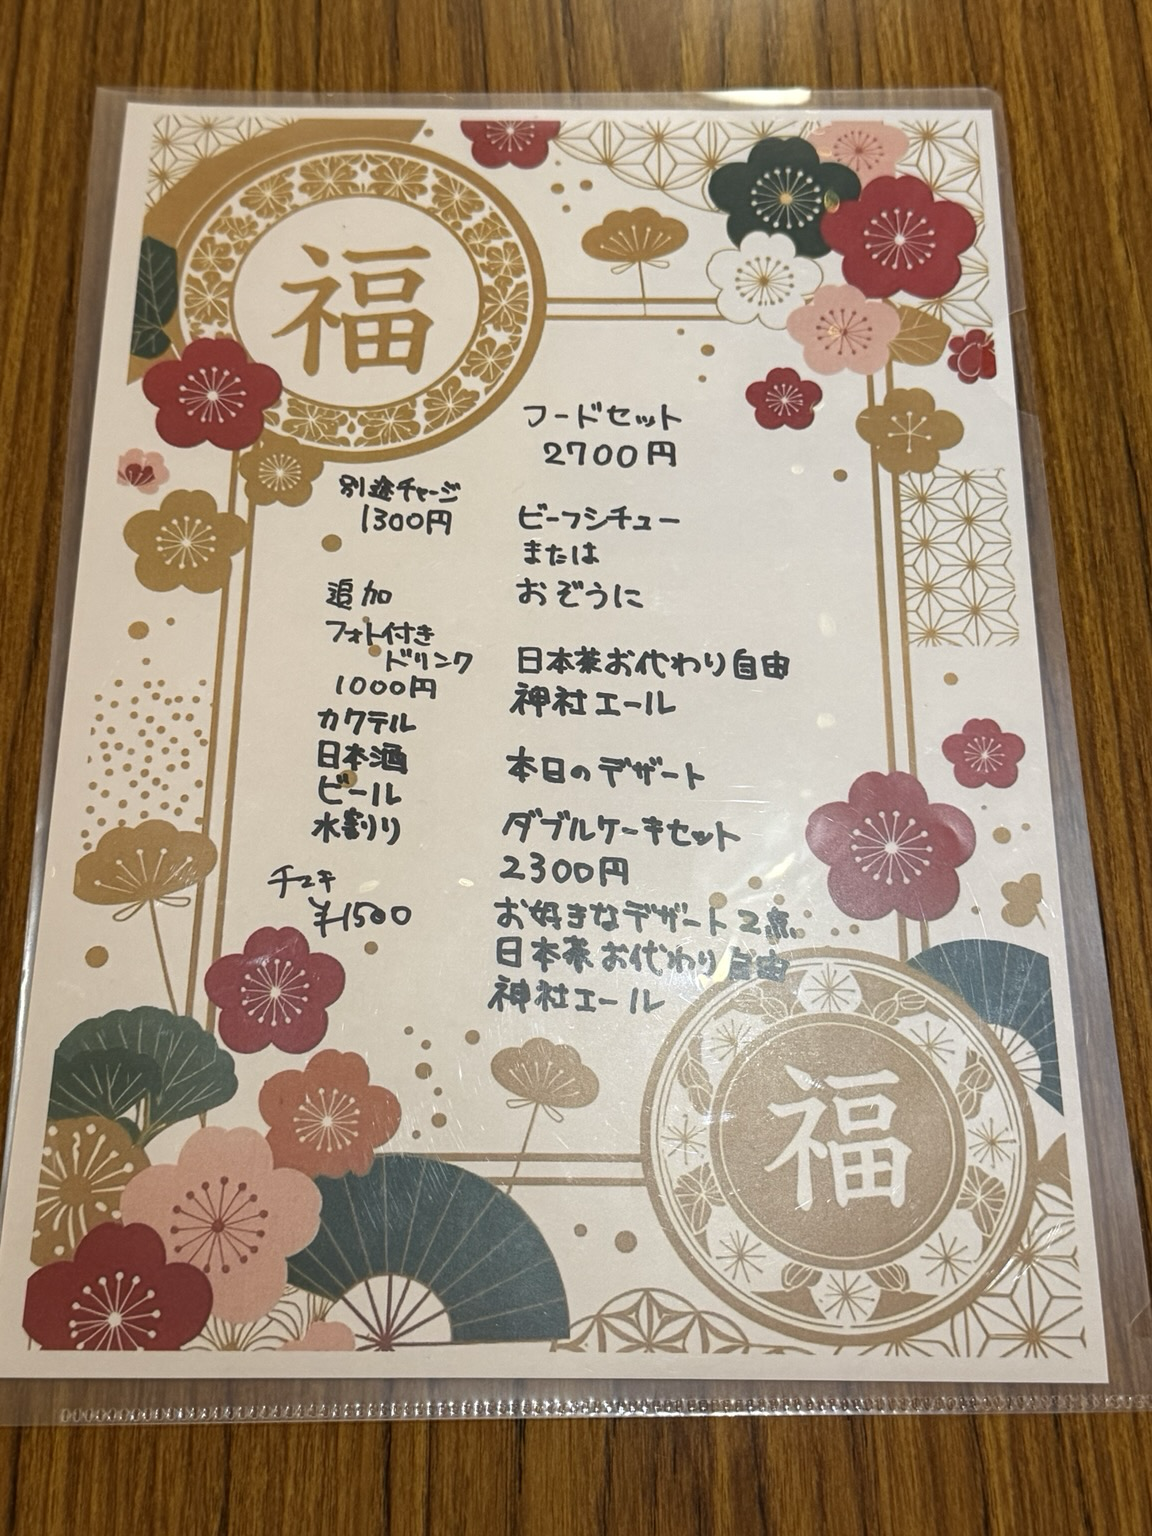 福
フードセット
2700円
ビーフシチュー
または
おぞうに
日本茶お代わり自由
神社エール
本日のデザート
ダブルケーキセット
2300円
お好きなデザート2点
日本茶お代わり自由
神社エール
別途チャージ
1300円
追加
フォト付き
ドリンク
1000円
カクテル
日本酒
ビール
水割り
チェキ
¥1500
福